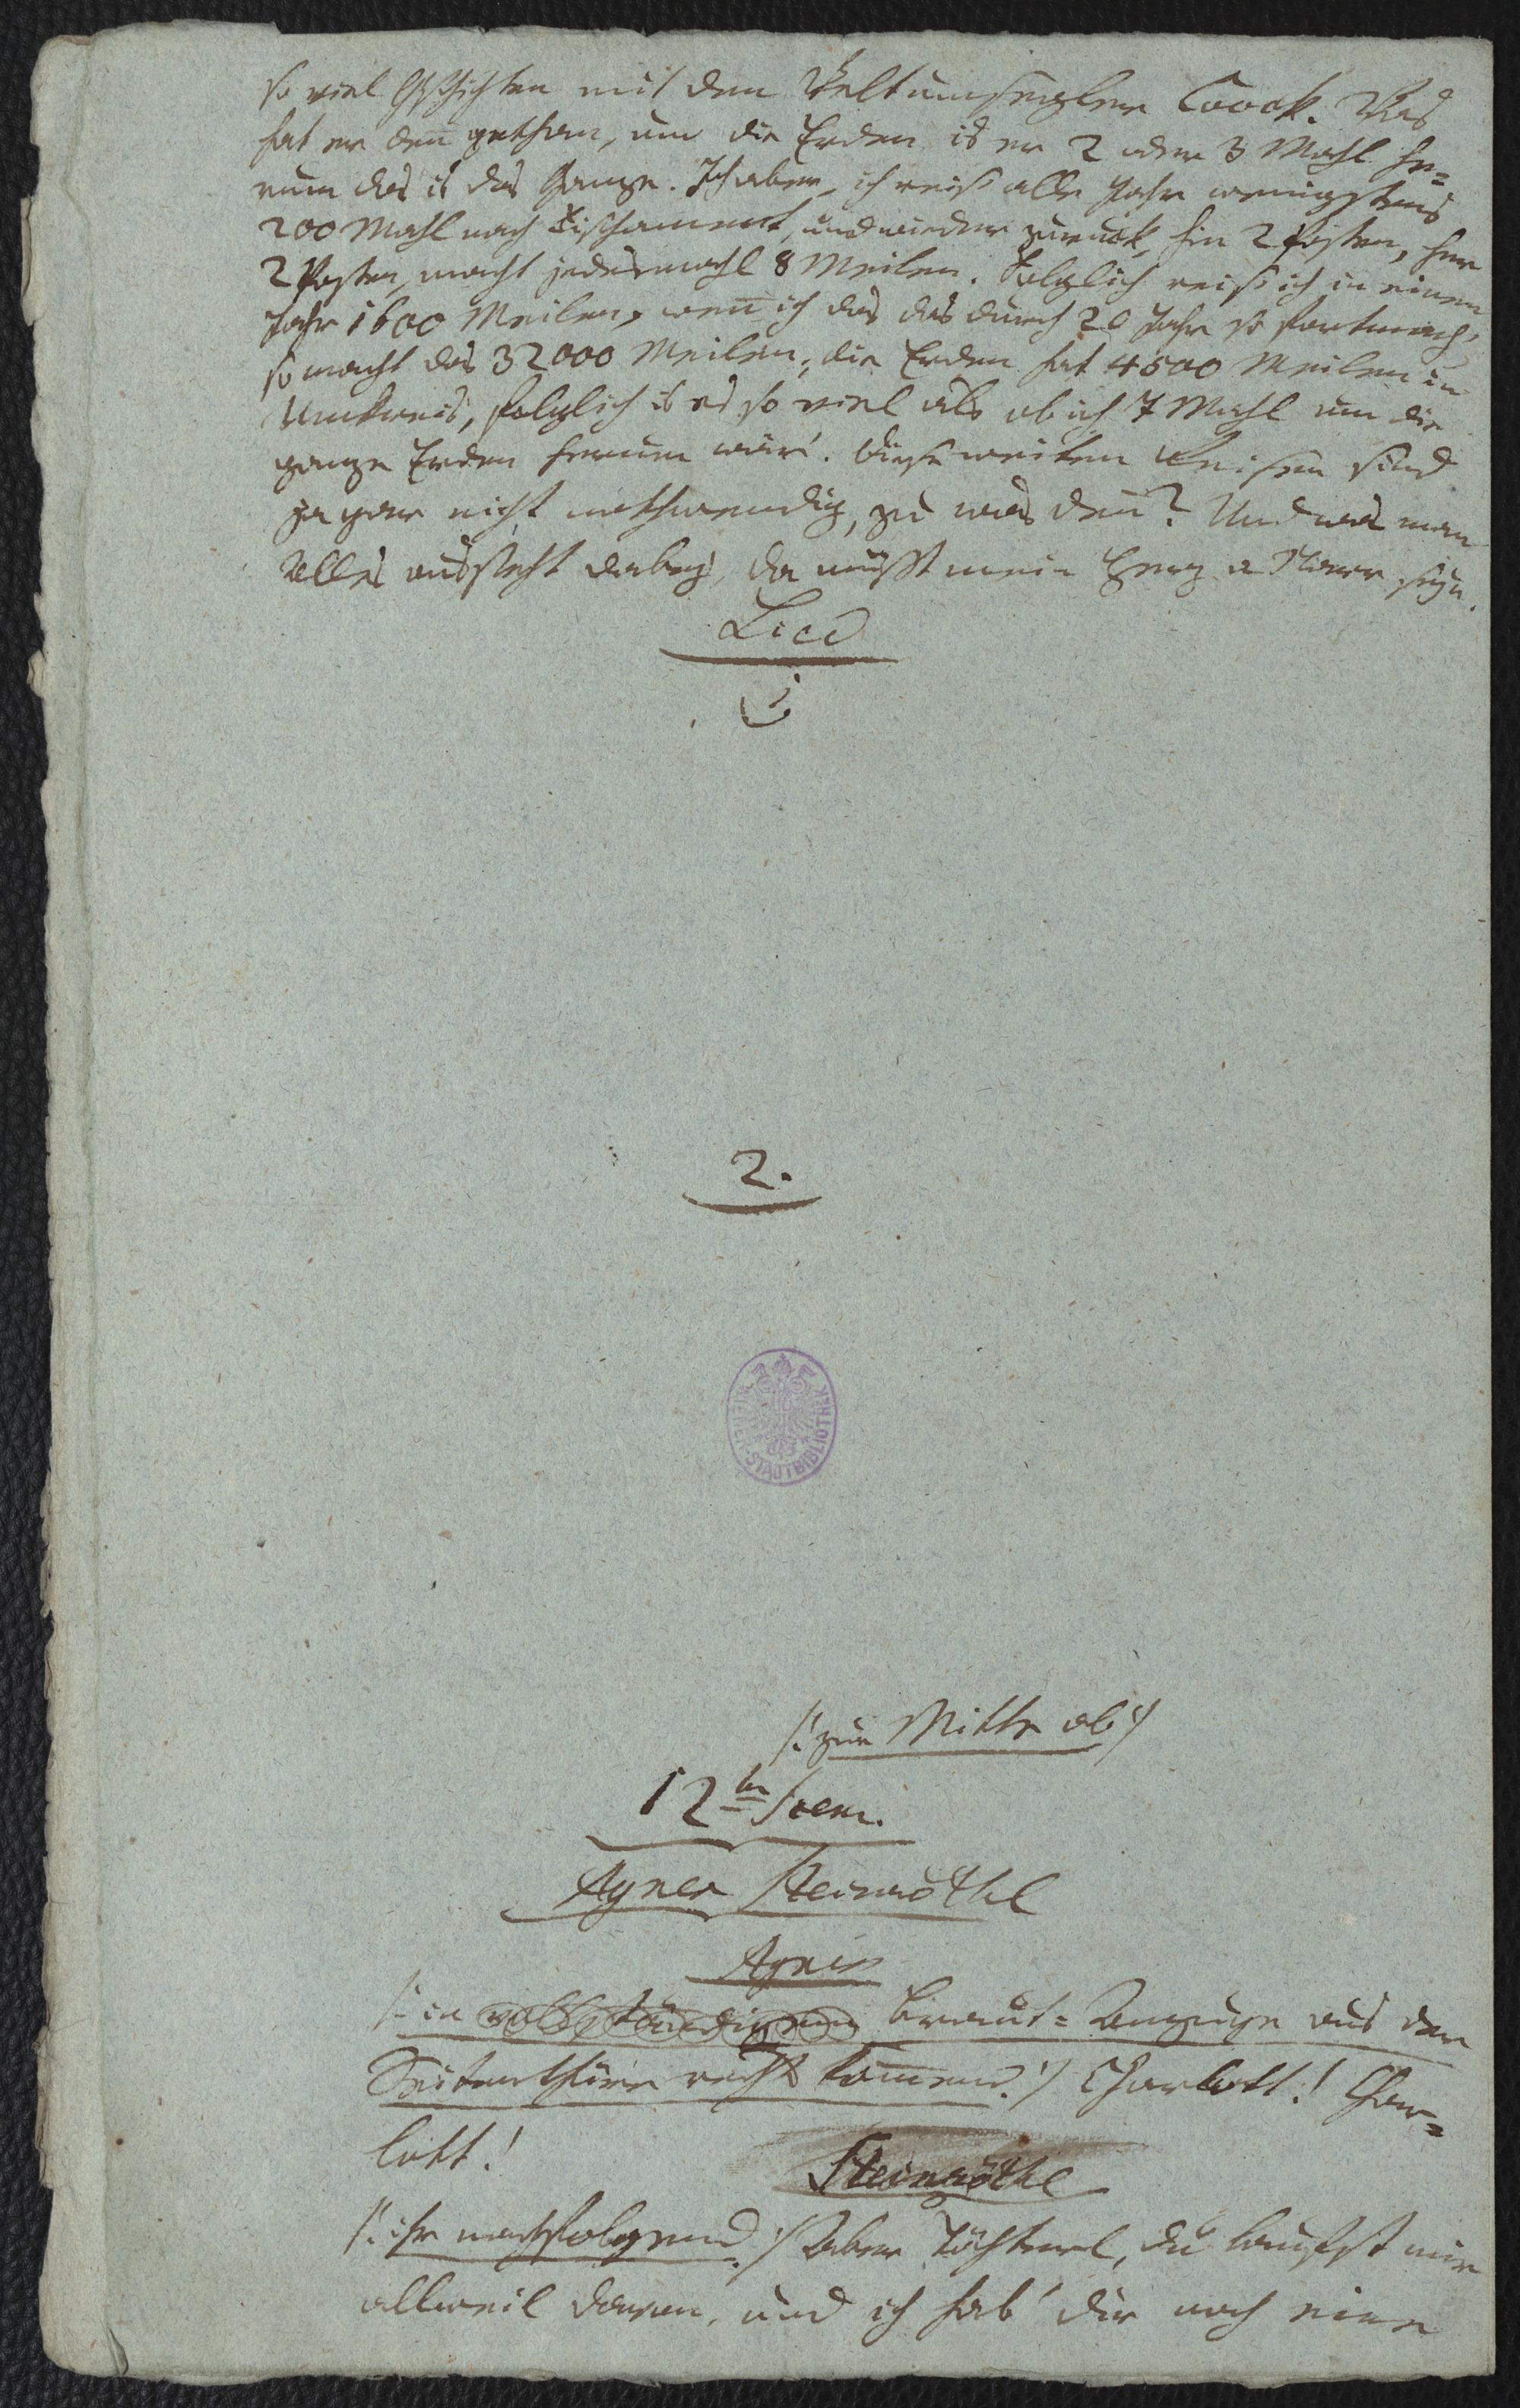 so viel Gschichten mit den Weltumsegler Coock. Was
hat er den̅ gethan, um die Erden is er 2 oder 3 Mahl he=
rum das is das Ganze. Ich aber, ich reis alle Jahr wenigstens
200 Mahl nach Fischament, und wieder zurück, hin 2 Posten, her
2 Posten, macht jedesmahl 8 Meilen. Folglich reis ich in einem
Jahr 1600 Meilen, wen̅ ich das das durch 20 Jahr so fortmach,
so macht das 32000 Meilen, die Erden hat 4500 Meilen im
Umkreis, folglich is es so viel als ob ich 7 Mahl um die
ganze Erden herum wär'. Diese weiten Reisen sind
ja gar nicht nothwendig, zu was den̅? Und was man
Alles aussteht dabey, da müsst mein Herz a Narr seyn.
Lied
1
2.
/: zur Mitte ab :/
12te Scene.
Agnes Steinröthl
Agnes
/: in vollständigem Braut=Anzuge aus der
Seitenthüre rechts kom̅end. :/ Charlott! Char=
lott!
Steinröthl
/: ihr nachfolgend. :/ Aber Töchterl, du laufst mir
allweil davon, und ich hab' dir noch eine
WIENER STADTBIBLIOTHEK